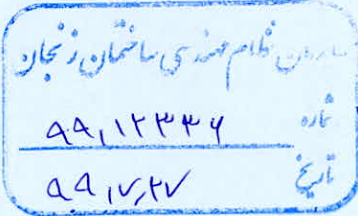 سازمان نظام مهندسی ساختمان زنجان
شماره ۹۹,۱۲۳۳۶
تاریخ ۹۹,۷,۲۷